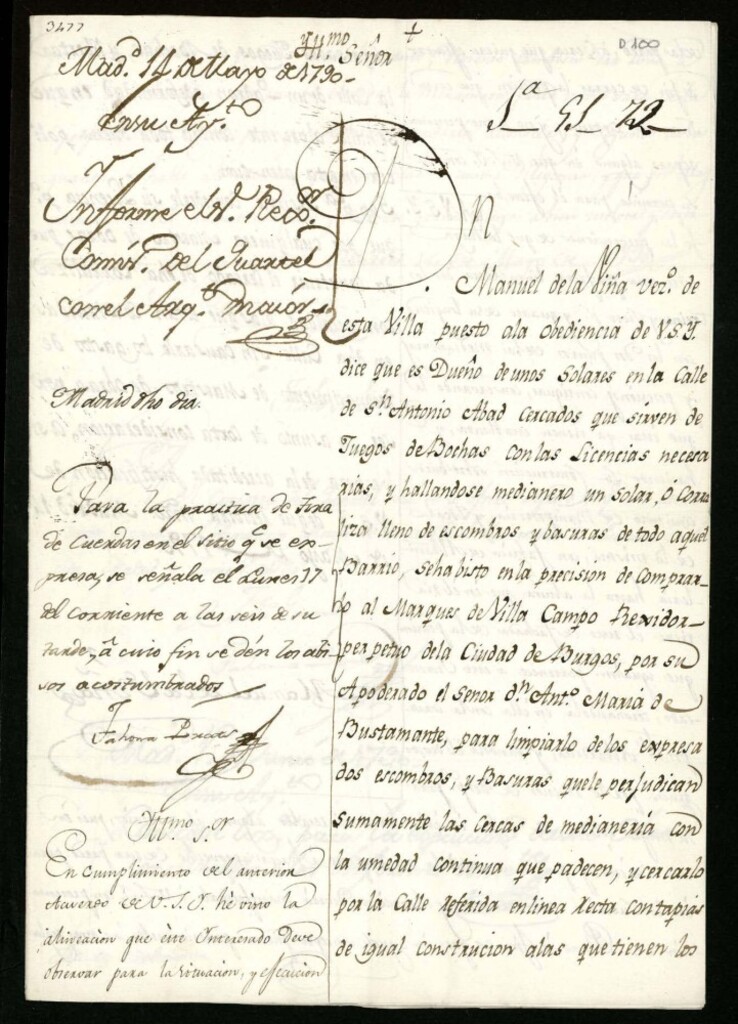 3477
D 100
+
Yllmo. Señor
1a 51 72
Mad.d 14 de Mayo de 1790
En su Ay.to
Ynforme el S.r Rexor.
Comis.o del Quartel
con el Arq.to maior
Madrid dho dia.
Para la practica de tira
de Cuerdas en el sitio q.e se ex-
presa, se señala el Lunes 17
del Corriente a las seis de su
tarde, a cuio fin se dén los abi-
sos acostumbrados
Yllmo. S.or
En Cumplimiento del anterior
Acuerdo de V.S.Y. hé visto la
alineacion que este Ynteresado Deve
observar para la situacion, y elevacion
Dn
Manuel de la Viña vez.o de
esta Villa puesto ala obediencia de V.S.Y.
dice que es Dueño de unos Solares en la Calle
de S.n Antonio Abad Cercados que sirven de
Juegos de Bochas con las Licencias necesa
rias, y hallandose medianero un Solar, ó Corra
liza lleno de escombros y basuras de todo aquel
Barrio, se habisto en la precision de Comprar-
lo al Marques de Villa Campo Rexidor
perpetuo dela Ciudad de Burgos, por su
Apoderado el Senor d.n Ant.o Maria de
Bustamante, para limpiarlo delos expresa
dos escombros, y Basuras quele perjudican
sumamente las Cercas de medianeria con
la umedad continua que padecen, y cercarlo
por la Calle referida en linea recta con tapias
de igual construcion alas que tienen los